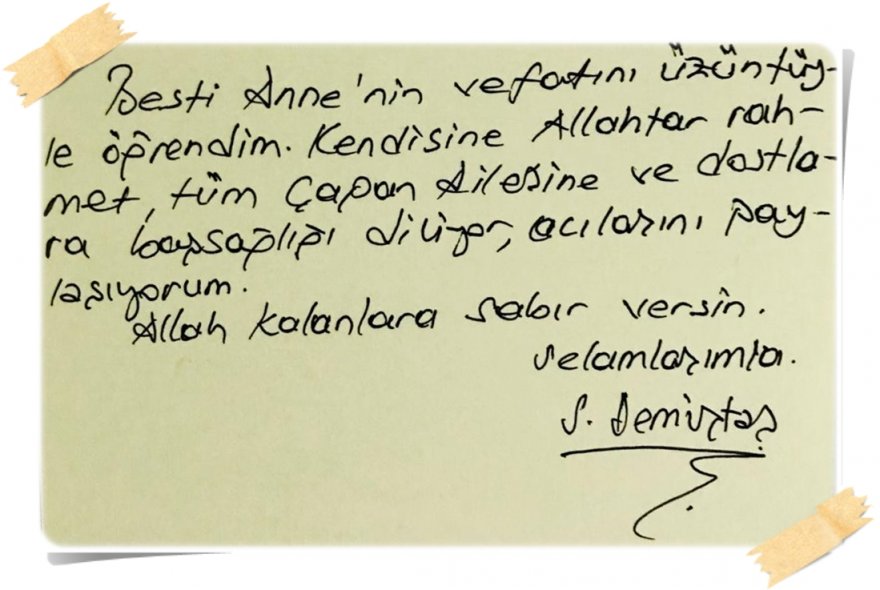 Besti Anne'nin vefatını üzüntüy-
le öğrendim. Kendisine Allahtar rah-
met, tüm Çapan Ailesine ve dostla-
ra başsağlığı diliyor, acılarını pay-
laşıyorum.
Allah kalanlara sabır versin.
Selamlarımla.
S. Demirtaş